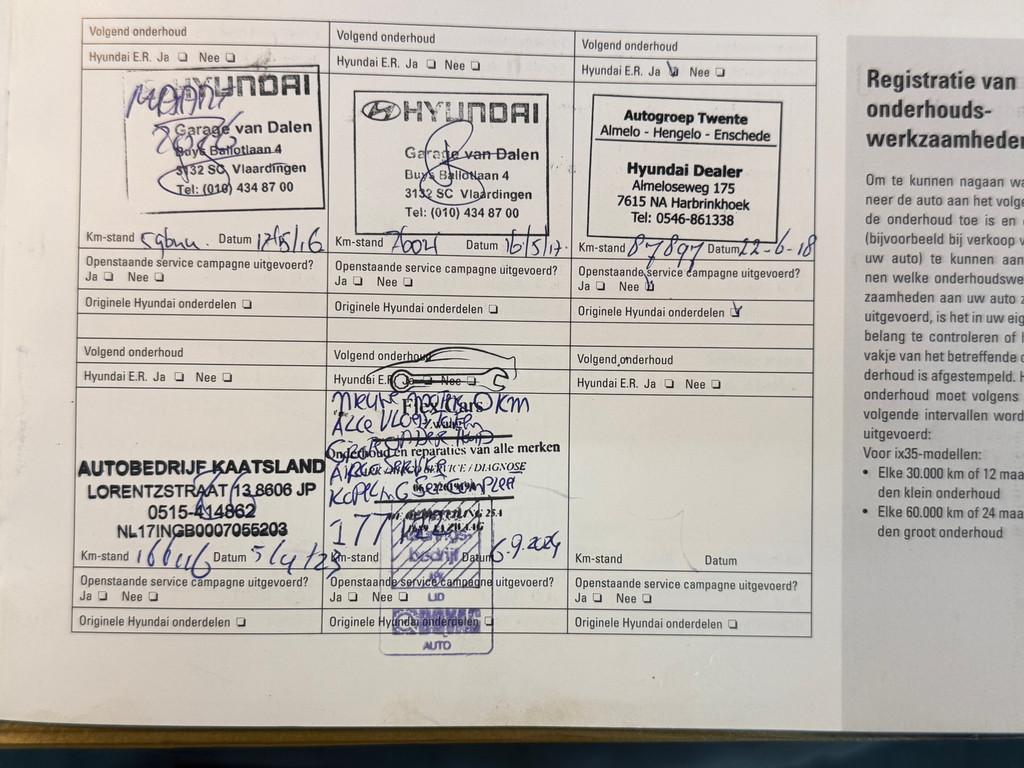 Volgend onderhoud
Hyundai E.R. Ja Nee
HYUNDAI
Garage van Dalen
Buys Ballotlaan 4
3132 SC Vlaardingen
Tel: (010) 434 87 00
Km-stand Datum 12/5/16
Openstaande service campagne uitgevoerd?
Ja Nee
Originele Hyundai onderdelen
Volgend onderhoud
Hyundai E.R. Ja Nee
HYUNDAI
Garage van Dalen
Buys Ballotlaan 4
3132 SC Vlaardingen
Tel: (010) 434 87 00
Km-stand Datum 16/5/17.
Openstaande service campagne uitgevoerd?
Ja Nee
Originele Hyundai onderdelen
Volgend onderhoud
Hyundai E.R. Ja Nee
Autogroep Twente
Almelo - Hengelo - Enschede
Hyundai Dealer
Almeloseweg 175
7615 NA Harbrinkhoek
Tel: 0546-861338
Km-stand 87897 Datum 22-6-18
Openstaande service campagne uitgevoerd?
Ja Nee
Originele Hyundai onderdelen
Volgend onderhoud
Hyundai E.R. Ja Nee
AUTOBEDRIJF KAATSLAND
LORENTZSTRAAT 13 8606 JP
0515-414862
NL17INGB0007055203
Km-stand Datum 5/4/23
Openstaande service campagne uitgevoerd?
Ja Nee
Originele Hyundai onderdelen
Volgend onderhoud
Hyundai E.R. Ja Nee
NIEUWE MOTOR 0 KM
Flex Cars
ALLE
Onderhoud en reparaties van alle merken
AIRCO SERVICE / DIAGNOSE
KOPPELING SET COMPLEET
177
bedrijf
Km-stand Datum 6.9.2024
Openstaande service campagne uitgevoerd?
Ja Nee
LID
Originele Hyundai onderdelen
BOVAG
AUTO
Volgend onderhoud
Hyundai E.R. Ja Nee
Km-stand Datum
Openstaande service campagne uitgevoerd?
Ja Nee
Originele Hyundai onderdelen
Registratie van
onderhouds-
werkzaamheden
Om te kunnen nagaan wa
neer de auto aan het volge
de onderhoud toe is en
(bijvoorbeeld bij verkoop v
uw auto) te kunnen aan
nen welke onderhoudswe
zaamheden aan uw auto z
uitgevoerd, is het in uw eig
belang te controleren of h
vakje van het betreffende o
derhoud is afgestempeld. H
onderhoud moet volgens
volgende intervallen word
uitgevoerd:
Voor ix35-modellen:
• Elke 30.000 km of 12 maa
den klein onderhoud
• Elke 60.000 km of 24 maa
den groot onderhoud